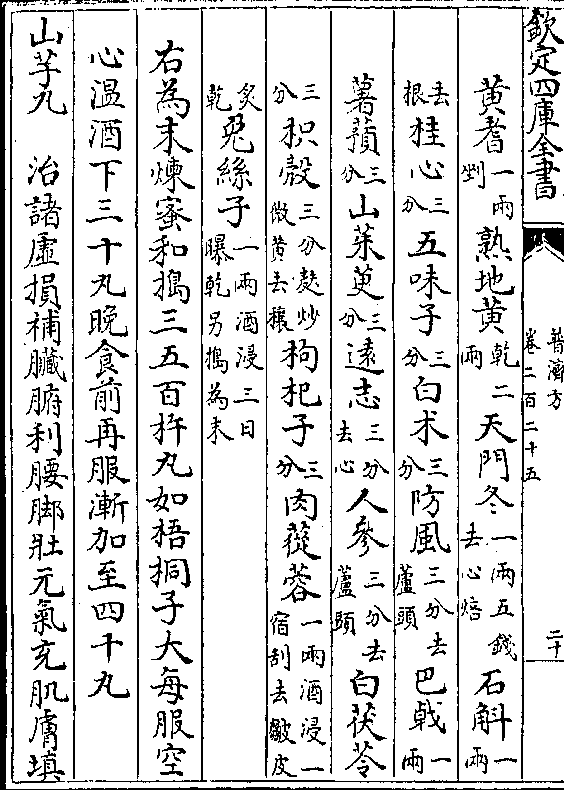 欽定四庫全書
普濟方
卷二百二十五
二十
黄耆一兩剉熟地黄乾二兩天門冬一兩五錢去心焙石斛一兩
去根桂心三分五味子三分白术三分防風三分去蘆頭巴戟一兩
薯蕷三分山茱萸三分遠志三分去心人參三分去蘆頭白茯苓
三分枳殼三分麩炒微黄去穰枸杞子三分肉蓯蓉一兩酒浸一宿刮去皺皮
炙乾兎絲子一兩酒浸三日曝乾另搗為末
右為末煉蜜和搗三五百杵丸如梧桐子大每服空
心溫酒下三十丸晚食前再服漸加至四十丸
山芋丸 治諸虛損補臟腑利腰脚壯元氣充肌膚填